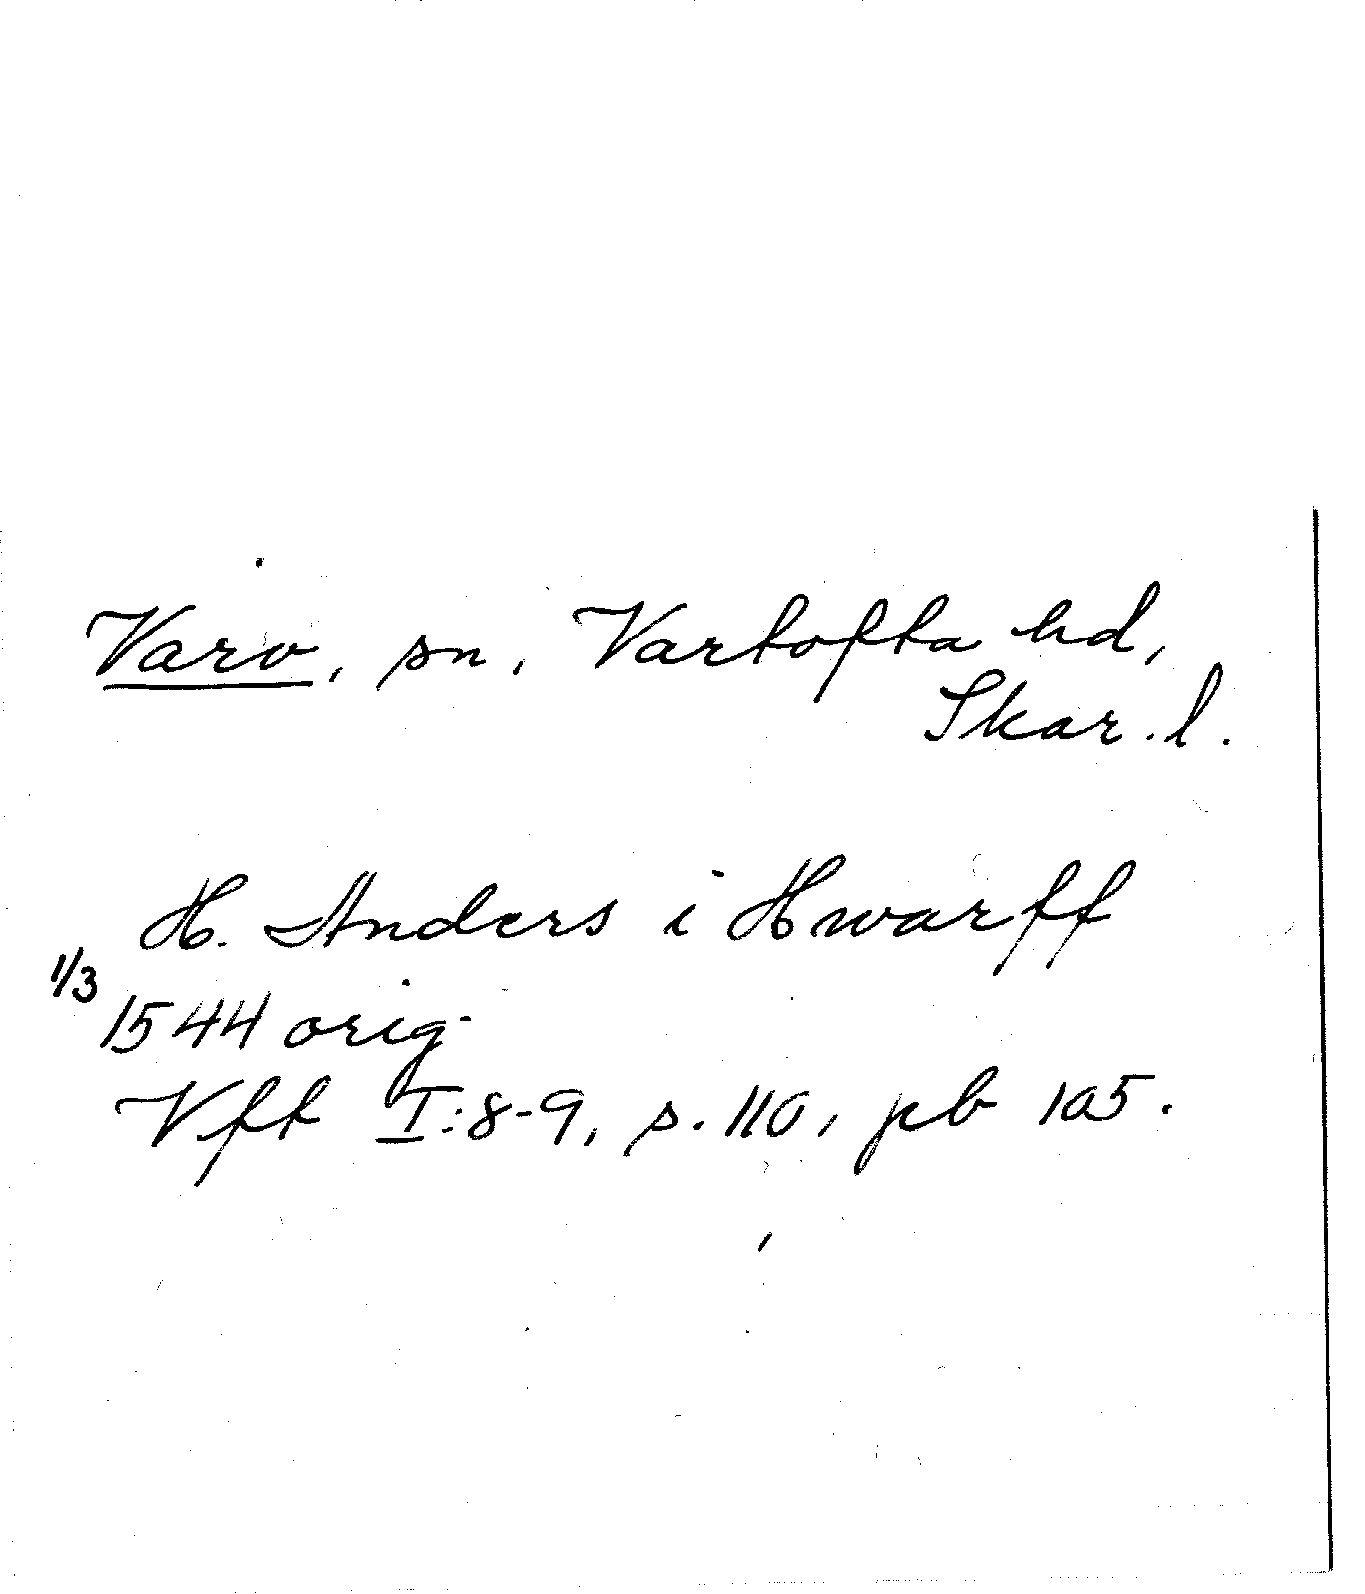 Varv, sn, Vartofta hd,
Skar. l.
H. Anders i Hwarff
1/3
1544 orig.
Vft I:8-9, s. 110, pb 105.